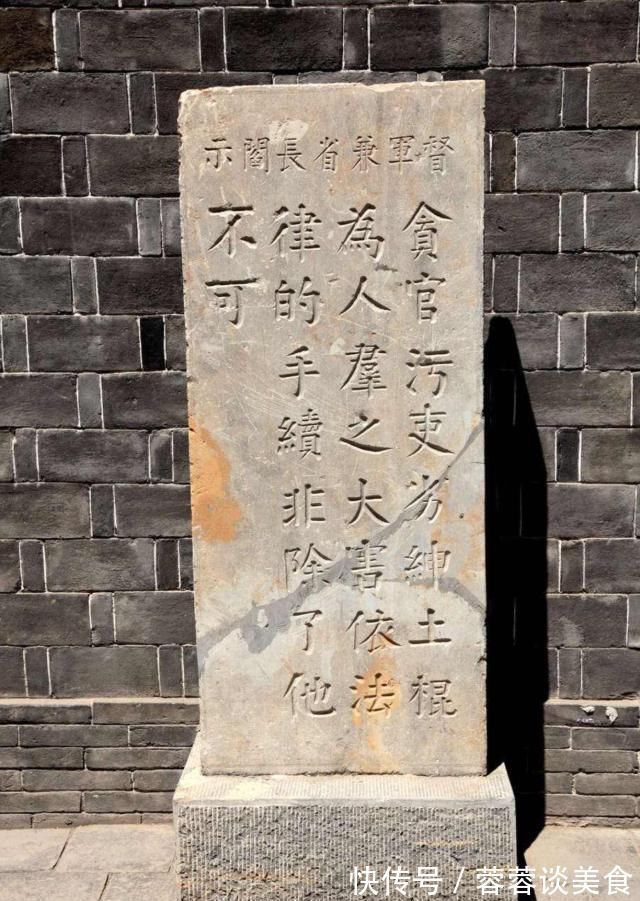 督軍兼省長閻示
貪官污吏劣紳土棍
為人羣之大害依法
律的手續非除了他
不可
快传号 / 蓉蓉谈美食